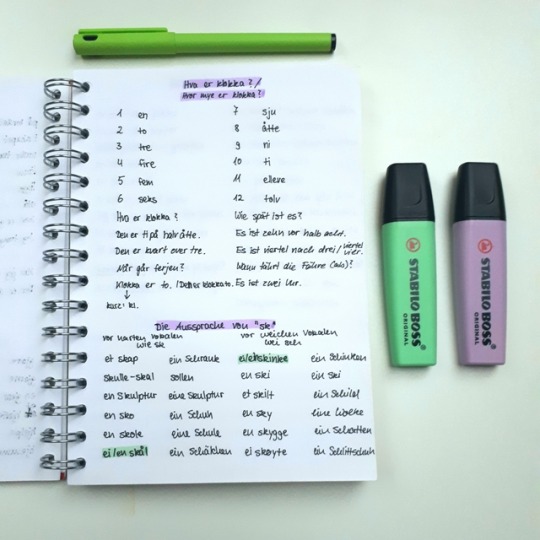 Hva er klokka? /
Hvor mye er klokka?
1 en 7 sju
2 to 8 åtte
3 tre 9 ni
4 fire 10 ti
5 fem 11 elleve
6 seks 12 tolv
Hva er klokka? Wie spät ist es?
Den er ti på halv åtte. Es ist zehn vor halb acht.
Den er kvart over tre. Es ist viertel nach drei / viertel vier.
Når går ferjen? Wann fährt die Fähre (ab)?
Klokka er to. / Den er klokka to. Es ist zwei Uhr.
↓
kurz: kl.
Die Aussprache von "sk"
vor harten Vokalen wie sk vor weichen Vokalen wei sch
et skap ein Schrank ei/en skinke ein Schinken
skulle - skal sollen en ski ein Ski
en Skulptur eine Skulptur et skilt ein Schild
en sko ein Schuh en sky eine Wolke
en skole eine Schule en skygge ein Schatten
ei/en skål ein Schälchen ei skøyte ein Schlittschuh
STABILO BOSS
ORIGINAL
STABILO BOSS
ORIGINAL